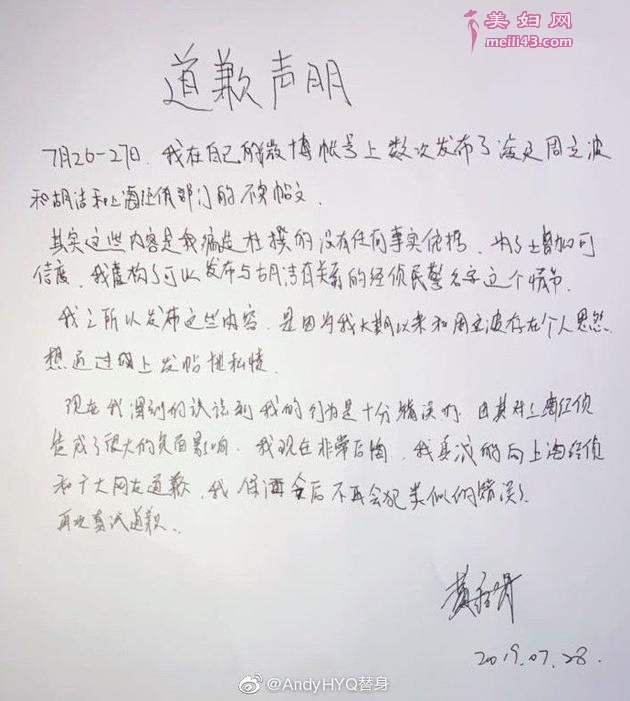 美妇网
meili43.com
道歉声明
7月26-27日，我在自己的微博帐号上数次发布了涉及周立波
和胡洁和上海经侦部门的不实帖文．
其实这些内容是我编造杜撰的没有任何事实依据．为了增加可
信度．我虚构了可以发布与胡洁有关系的经侦民警名字这个情节．
我之所以发布这些内容．是因为我长期以来和周立波存在个人恩怨
想通过网上发帖泄私愤．
现在我深刻的认识到我的行为是十分错误的．尤其对上海经侦
造成了很大的负面影响．我现在非常后悔．我真诚的向上海经侦
和广大网友道歉．我保证今后不再会犯类似的错误．
再次真诚道歉．
2019.07.28.
@AndyHYQ替身